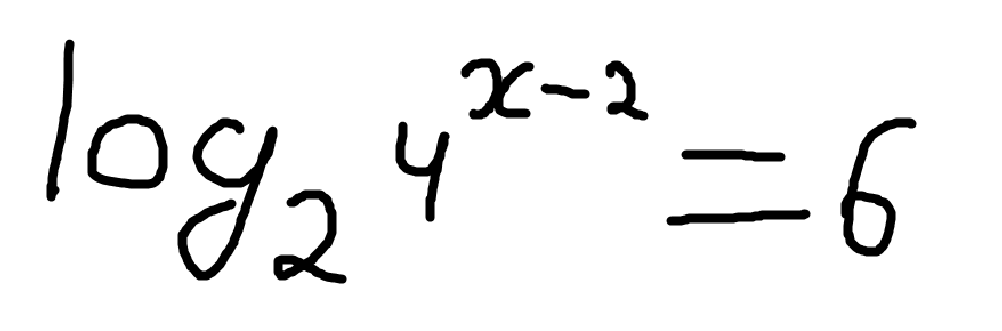 log₂ 4^(x-2) = 6